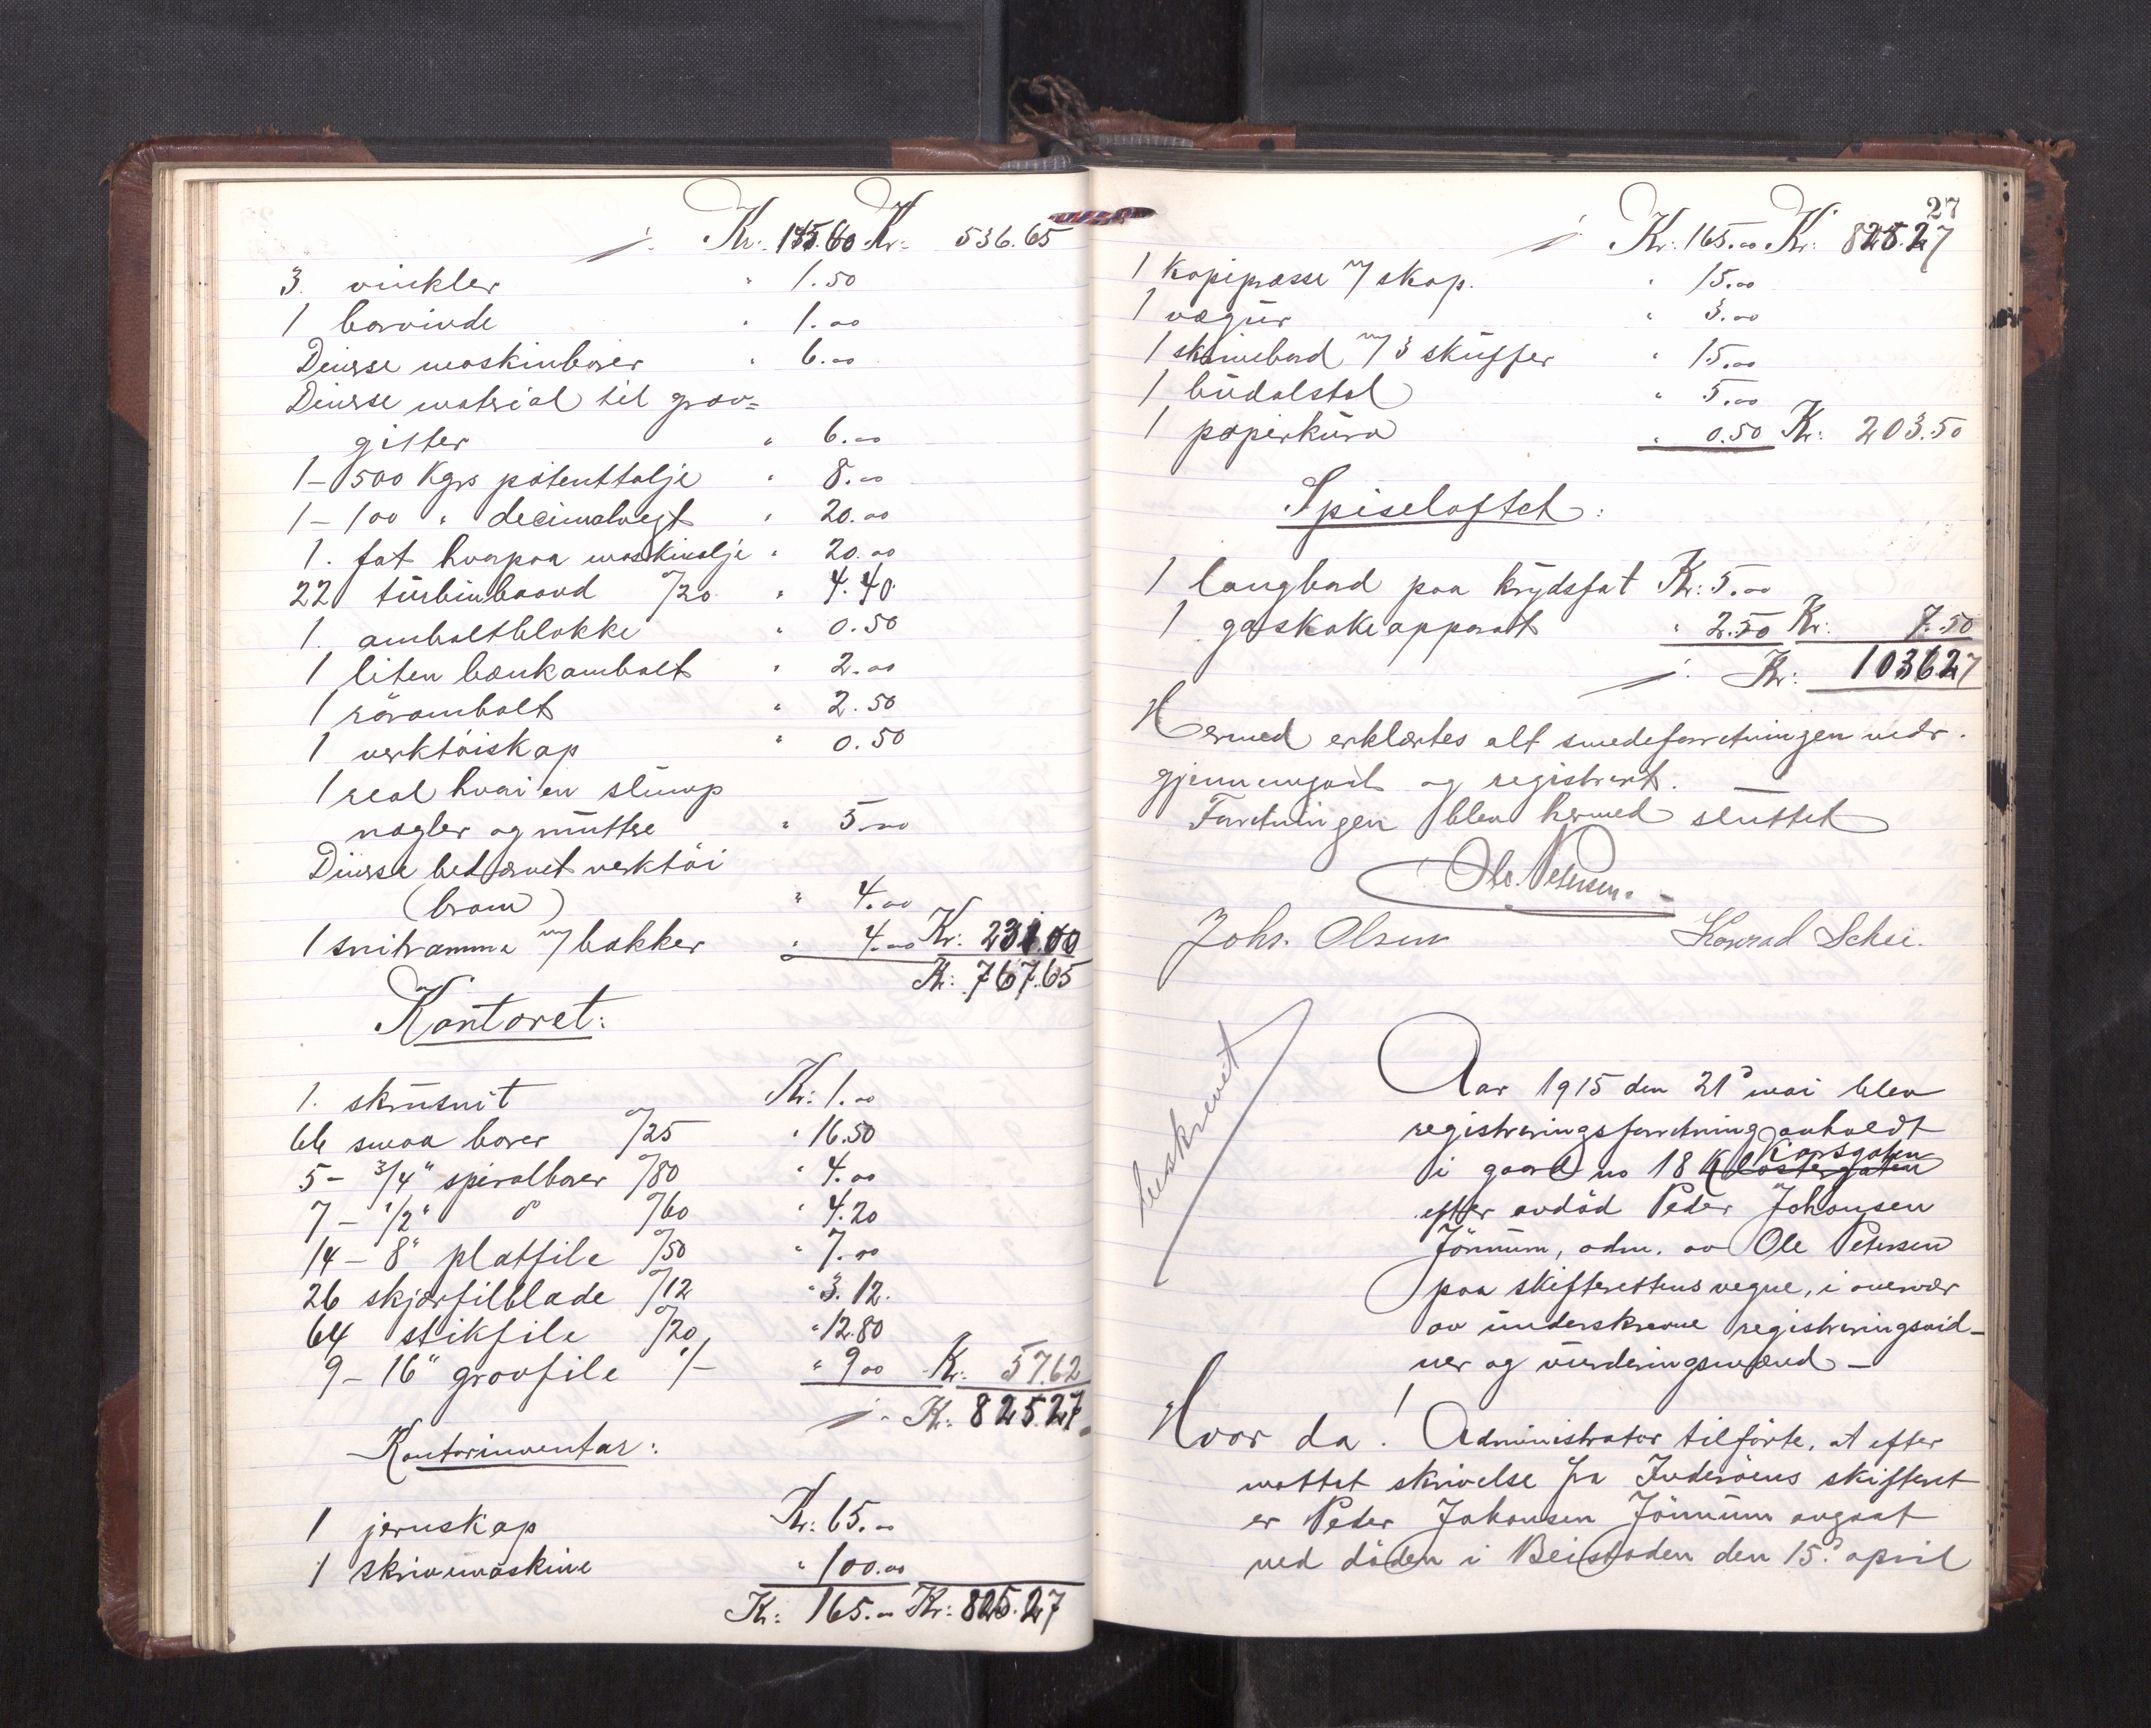 Kr. 145.60 Kr. 536.65
3. vinkler " 1.50
1 borvinde " 1.00
Diverse maskinborer " 6.00
Diverse matrial til grav=
gitter " 6.00
1 - 500 Kgs patenttalje " 8.00
1 - 100 " decimalvegt " 20.00
1. fat hvorpaa maskinolje " 20.00
22 turbinbaand a/20 " 4.40
1. amboltblokke " 0.50
1 liten bænkambolt " 2.00
1 rørambolt " 2.50
1 verktöiskap " 0.50
1 reol hvori en slump
nagler og muttre " 5.00
Diverse bedærvet verktöi
(bram) " 4.00
1 snitramma m/ bakker " 4.00 Kr: 231.00
Kr: 767.65
Kontoret:
1. skrusnit Kr: 1.00
66 smaa borer a/25 " 16.50
5 - 3/4" spiralborer a/80 " 4.00
7 - 1/2" d a/60 " 4.20
14 - 8" platfile a/50 " 7.00
26 skjærfilblade a/12 " 3.12.
64 stikfile a/20 " 12.80
9 - 16" grovfile a/- " 9.00 Kr: 57.62
Kr. 825.27
Kontorinventar:
1 jernskap Kr: 65.00
1 skrivemaskine " 100.00
Kr: 165.00 Kr: 825.27
27
Kr: 165.00 Kr: 825.27
1 Kopipresse m/ skap. " 15.00
1 vægur " 3.00
1 skrivebord m/ 3 skuffer " 15.00
1 stol " 5.00
1 papirkurv " 0.50 Kr: 203.50
Spiseloftet:
1 langbord paa krydsfat Kr: 5.00
1 gaskokeapparat " 2.50 Kr. 7.50
Kr: 1036.27
Hermed erklærtes alt smedeforretningen vedr.
gjennemgaat og registrert.
Forretningen blev hermed sluttet
Ole Petersen.
Johs. Olsen Konrad Schei.
beskrevet
Aar 1915 den 21d mai blev
registreringsforretning avholdt
i gaard no 18 Klostergaten Korsgaten
efter avdöd Peder Johansen
Jönnum, adm. av Ole Petersen
paa skifterettens vegne, i overvær
av underskrevne registreringsvid-
ner og vurderingsmænd -
Hvor da! Administrator tilförte, at efter
mottat skrivelse fra Inderöens skifteret
er Peder Johansen Jönnum avgaat
ved döden i Beistaden den 15d april